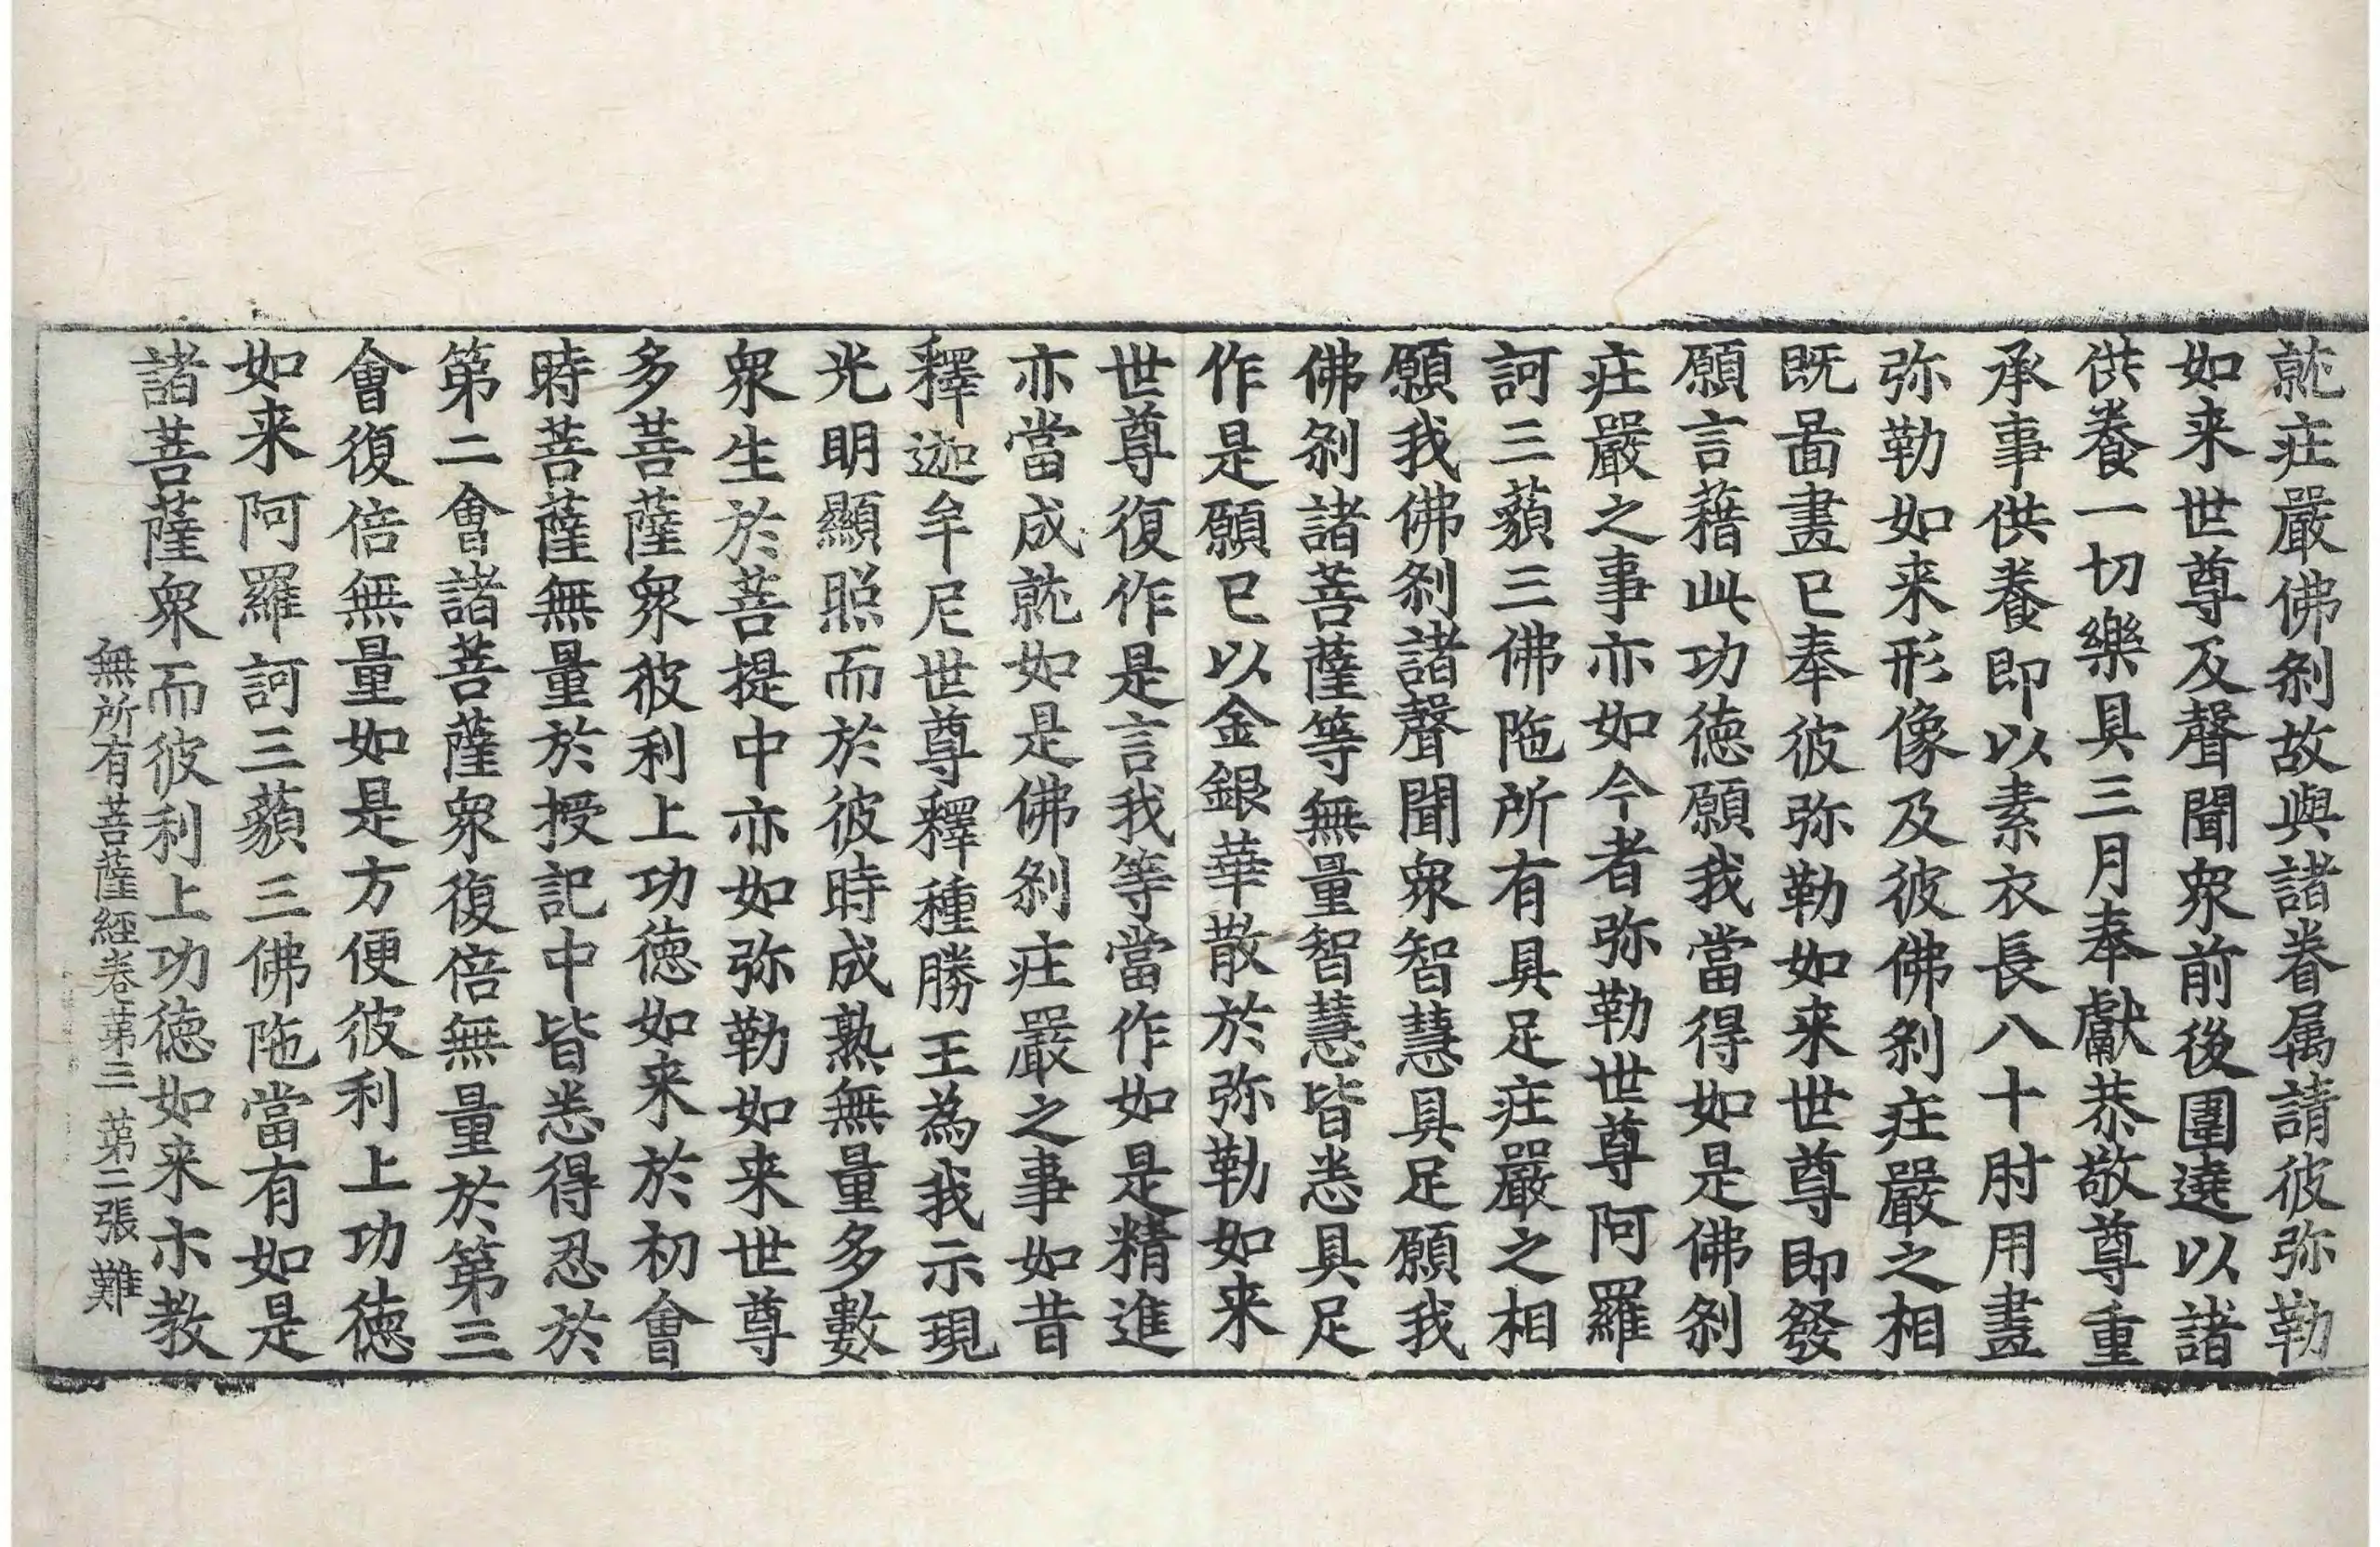 就庄嚴佛剎故與諸眷属請彼弥勒
如来世尊及聲聞衆前後圍遶以諸
供養一切樂具三月奉獻恭敬尊重
承事供養即以素衣長八十肘用畫
弥勒如来形像及彼佛剎庄嚴之相
既啚畫已奉彼弥勒如来世尊即發
願言藉此功徳願我當得如是佛剎
庄嚴之事亦如今者弥勒世尊阿羅
訶三藐三佛陁所有具足庄嚴之相
願我佛剎諸聲聞衆智慧具足願我
佛剎諸菩薩等無量智慧皆悉具足
作是願已以金銀華散於弥勒如来
世尊復作是言我等當作如是精進
亦當成就如是佛剎庄嚴之事如昔
釋迦牟尼世尊釋種勝王為我示現
光明顯照而於彼時成熟無量多數
衆生於菩提中亦如弥勒如来世尊
多菩薩衆彼利上功徳如来於初會
時菩薩無量於授記中皆悉得忍於
第二會諸菩薩衆復倍無量於第三
會復倍無量如是方便彼利上功徳
如来阿羅訶三藐三佛陁當有如是
諸菩薩衆而彼利上功徳如来亦教
無所有菩薩經卷第三 第二張 難